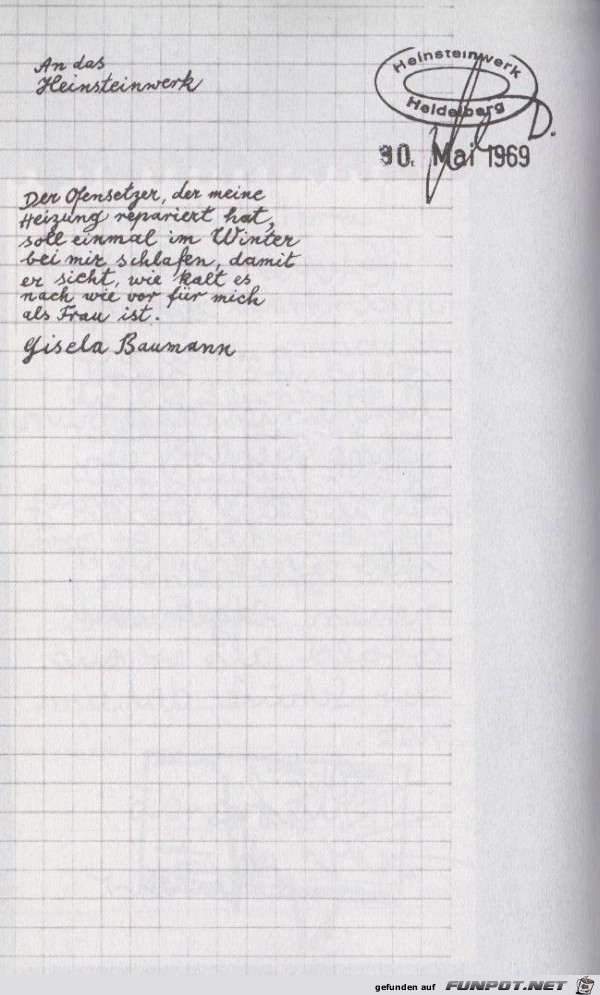 An das
Heinsteinwerk
Heinsteinwerk
Heidelberg
30. Mai 1969
Der Ofensetzer, der meine
Heizung repariert hat,
soll einmal im Winter
bei mir schlafen, damit
er sieht, wie kalt es
nach wie vor für mich
als Frau ist.
Gisela Baumann
gefunden auf FUNPOT.NET